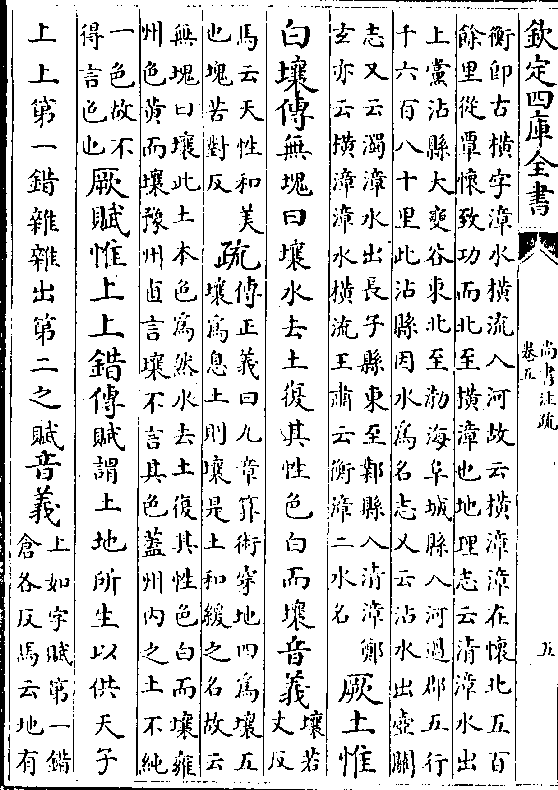 欽定四庫全書
尚書注疏
卷五
五
衡即古橫字漳水橫流入河故云橫漳漳在懷北五百
餘里從覃懷致功而北至橫漳也地理志云清漳水出
上黨沾縣大黽谷東北至渤海阜城縣入河過郡五行
千六百八十里此沾縣因水為名志又云沾水出壺關
志又云濁漳水出長子縣東至鄴縣入清漳鄭
玄亦云橫漳漳水橫流王肅云衡漳二水名
厥土惟
白壤傳無塊曰壤水去土復其性色白而壤音義
壤若
丈反
馬云天性和美
也塊苦對反
疏
傳正義曰九章算術穿地四為壤五
壤為息土則壤是土和緩之名故云
無塊曰壤此土本色為然水去土復其性色白而壤雍
州色黃而壤豫州直言壤不言其色蓋州內之土不純
一色故不
得言色也
厥賦惟上上錯傳賦謂土地所生以供天子
上上第一錯雜雜出第二之賦音義
上如字賦第一錯
倉各反馬云地有